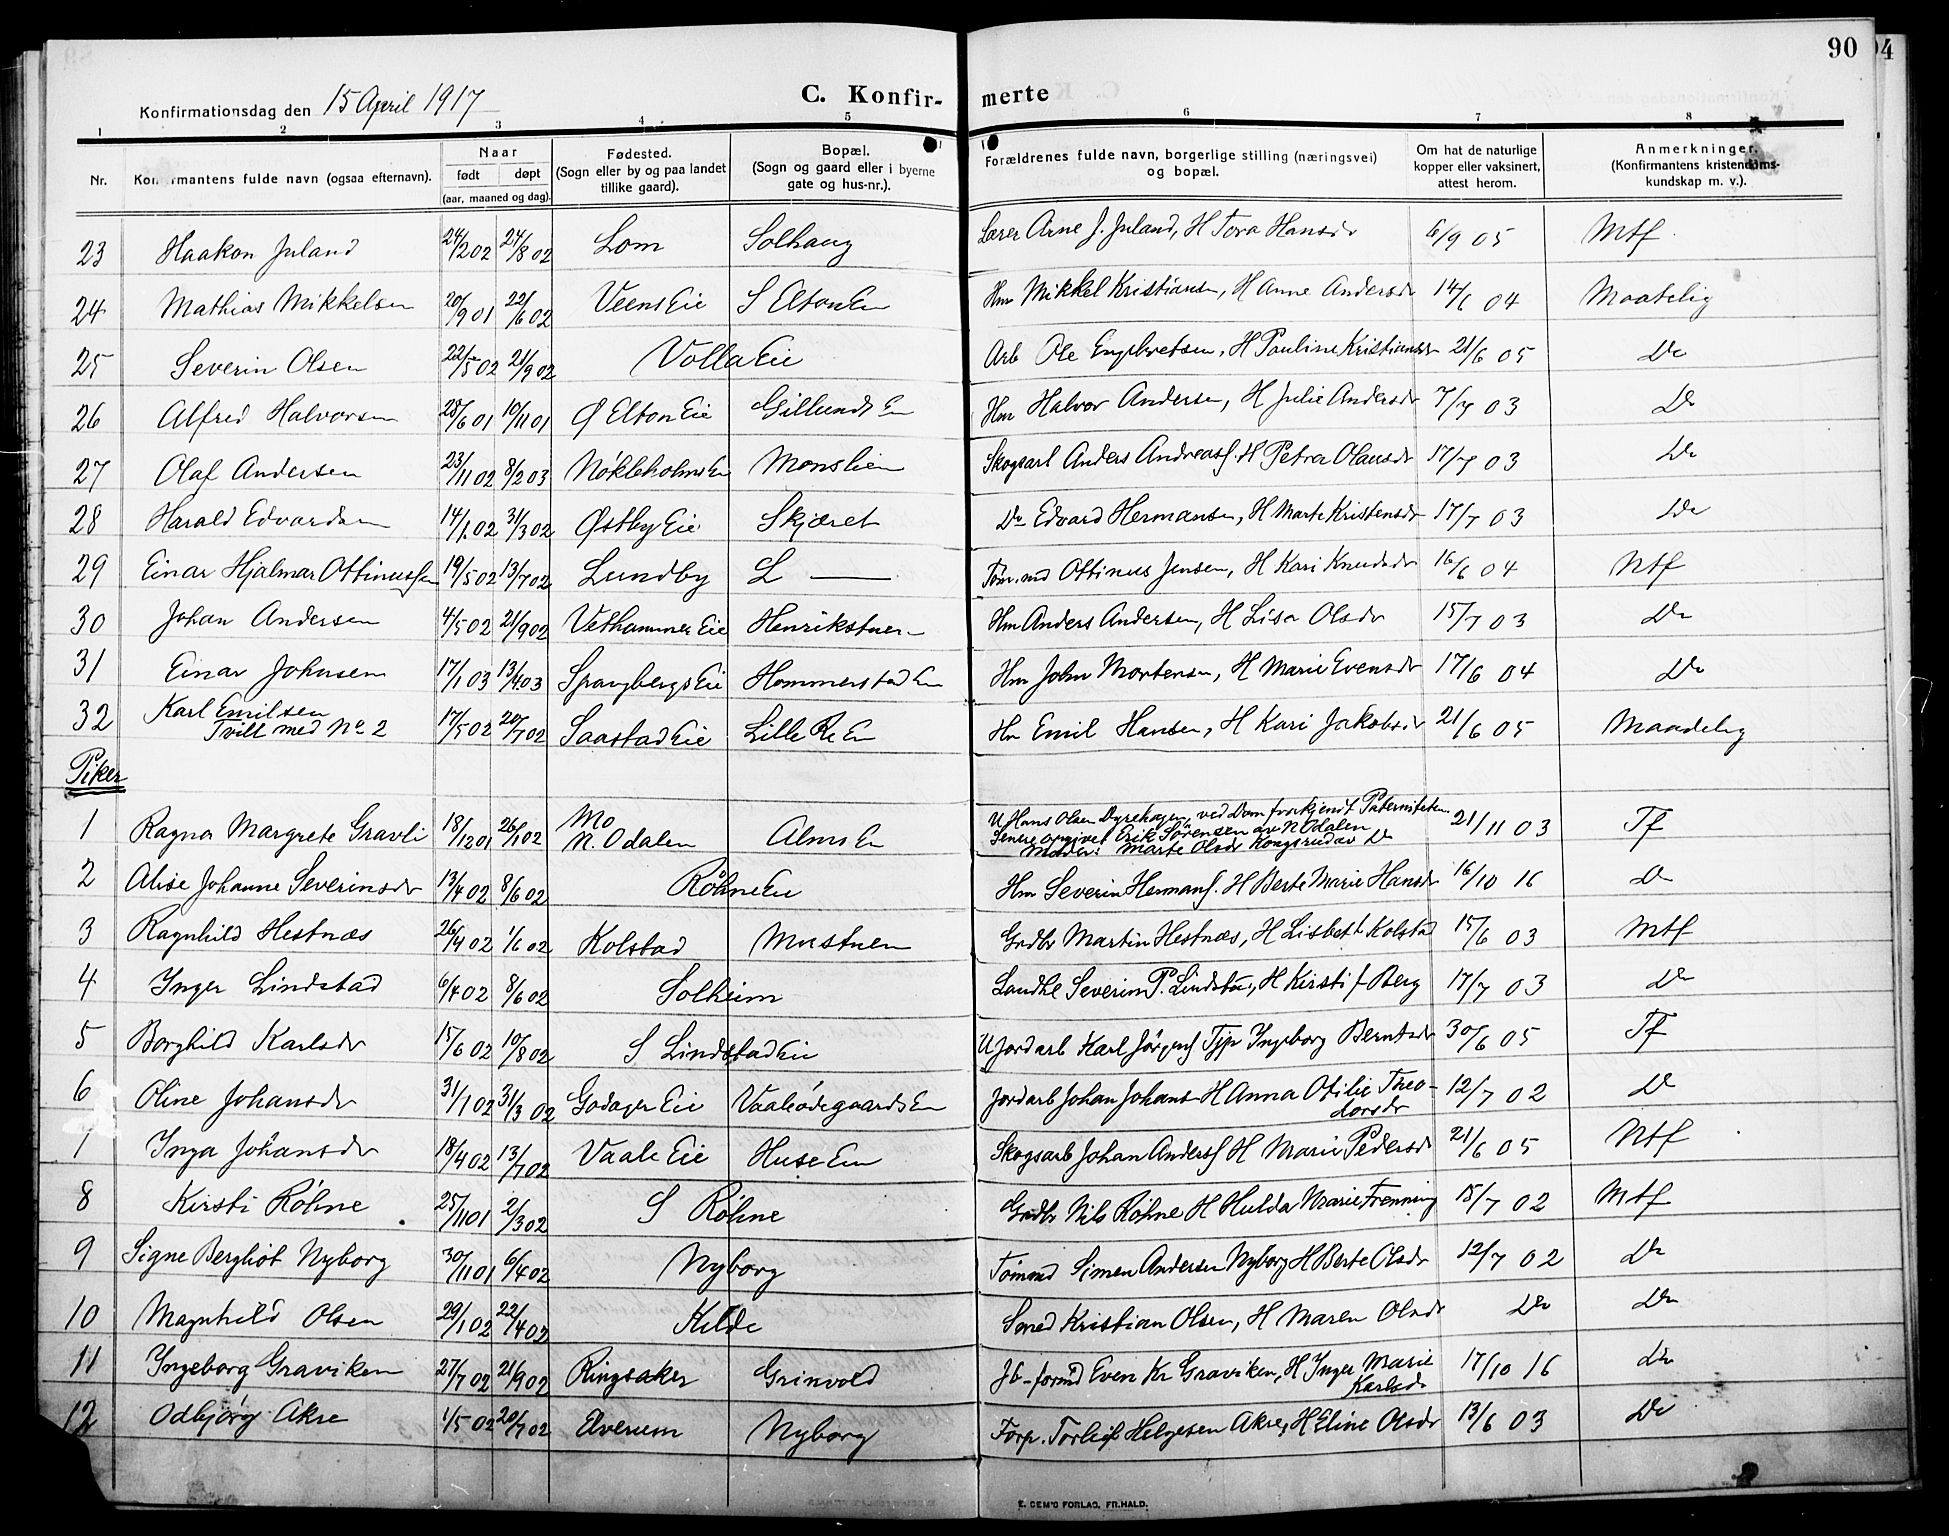 90
94
Konfirmationsdag den 15 April 1917
C. Konfir- merte
1 2 3 4 5 6 7 8
Nr. Konfirmantens fulde navn (ogsaa efternavn). Naar født døpt (aar, maaned og dag). Fødested. (Sogn eller by og paa landet tillike gaard). Bopæl. (Sogn og gaard eller i byerne gate og hus-nr.). Forældrenes fulde navn, borgerlige stilling (næringsvei) og bopæl. Om hat de naturlige kopper eller vaksinert, attest herom. Anmerkninger. (Konfirmantens kristendoms- kundskap m. v.).
23 Haakon Juland 24/2 02 24/8 02 Lom Solhaug Lærer Arne J. Juland, H Tora Hansdr 6/9 05 Mtf
24 Mathias Mikkelsen 20/9 01 22/6 02 Veens Eie S Elton En Hm Mikkel Kristiansen, H Anne Andersdr 14/6 04 Maatelig
25 Severin Olsen 22/5 02 21/9 02 Volla Eie Arb Ole Engebretsen, H Pauline Kristiansdr 21/6 05 Do
26 Alfred Halvorsen 28/6 01 10/11 01 Ø Elton Eie Gillunds En Hm Halvor Andersen, H Julie Andersdr 7/7 03 Do
27 Olaf Andersen 23/11 02 8/2 03 Nökleholms En Monslien Skogsarb Anders Andreass. H Petra Olausdr 17/7 03 Do
28 Harald Edvardsen 14/1 02 31/3 02 Østby Eie Skjæret Do Edvard Hermansen, H Marte Kristensdr 17/7 03 Do
29 Einar Hjalmar Ottinussen 19/5 02 13/7 02 Lundby L — Töm.md Ottinus Jensen, H Kari Knudsdr 16/6 04 Mtf
30 Johan Andersen 4/5 02 21/9 02 Vethammer Eie Henrikstuen Hm Anders Andersen, H Lisa Olsdr 15/7 03 Do
31 Einar Johnsen 17/1 03 13/4 03 Spangbergs Eie Hommerstad En Hm John Mortensen, H Marie Evensdr 17/6 04 Do
32 Karl Emilsen 17/5 02 20/7 02 Saastad Eie Lille Re En Hm Emil Hansen, H Kari Jakobsdr 21/6 05 Maadelig
Tvill med No 2
Piker
1 Ragna Margrete Gravli 18/12 01 26/1 02 Mo N. Odalen Alms En U Hans Olsen Dyrehagen, ved Dom frakjendt Paterniteten 21/11 03 Tf
Senere opgivet Erik Sørensen av N Odalen
Moder: Marte Olsdr Kongsrud av Do
2 Alise Johanne Severinsdr 13/4 02 8/6 02 Röhne Eie Hm Severin Hermans. H Berte Marie Hansdr 16/10 16 Do
3 Ragnhild Hestnæs 26/4 02 1/6 02 Kolstad Mustuen Grdbr Martin Hestnæs, H Lisbeth Kolstad 15/6 03 Mtf
4 Inger Lindstad 6/4 02 8/6 02 Solheim Landhl Severin P. Lindstad, H Kirsti f Berg 17/7 03 Do
5 Borghild Karlsdr 15/6 02 10/8 02 S Lindstad Eie U Jordarb Karl Jörgens Tjp Ingeborg Berntsdr 30/6 05 Tf
6 Oline Johansdr 31/1 02 31/3 02 Godager Eie Vaaleödegaards En Jordarb Johan Johans H Anna Otilie Theo- 12/7 02 Do
dorsdr
7 Inga Johansdr 18/4 02 13/7 02 Vaale Eie Huse En Skogsarb Johan Anders H Marie Pedersdr 21/6 05 Mtf
8 Kirsti Röhne 25/11 01 2/3 02 S Röhne Grdbr Nils Röhne H Hulda Marie Frenning 15/7 02 Mtf
9 Signe Bergliot Nyborg 30/11 01 6/4 02 Nyborg Tömmd Simen Andersen Nyborg H Berte Olsdr 12/7 02 Do
10 Magnhild Olsen 29/1 02 22/4 02 Kilde Smed Kristian Olsen, H Maren Olsdr Do Do
11 Ingeborg Graviken 27/7 02 21/9 02 Ringsaker Grinvold Jb-formd Even Kr Graviken, H Inger Marie 17/10 16 Do
Karlsdr
12 Odbjörg Akre 1/5 02 20/7 02 Elverum Nyborg Forp. Torleif Helgesen Akre, H Eline Olsdr 13/6 03 Do
E. SEM'S FORLAG, FR.HALD.